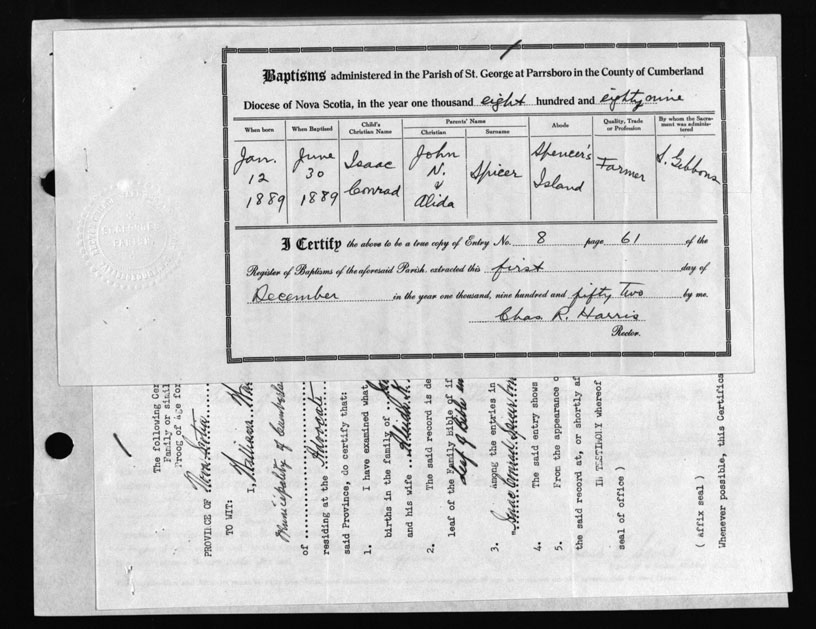 Baptisms administered in the Parish of St. George at Parrsboro in the County of Cumberland
Diocese of Nova Scotia, in the year one thousand eight hundred and eighty nine
When born When Baptised Child's Christian Name Parents' Name Christian Surname Abode Quality, Trade or Profession By whom the Sacrament was administered
Jan. 12 1889 June 30 1889 Isaac Conrad John N. & Alida Spicer Spencer's Island Farmer S. Gibbons
I Certify the above to be a true copy of Entry No. 8 page 61 of the
Register of Baptisms of the aforesaid Parish. extracted this first day of
December in the year one thousand, nine hundred and fifty Two by me.
Chas R. Harris
Rector.
The following Cer
Family or simil
Proog of age for
PROVINCE OF Nova Scotia
TO WIT:
I, Wallace
Municipality of Cumberla
of
residing at the Advocate
said Province, do certify that:
1. I have examined what
births in the family of
and his wife
2. The said record is de
leaf of the Family Bible of if
3. Among the entries in
"Isaac Conrad Spicer
4. The said entry shows
5. From the appearance o
the said record at, or shortly af
IN TESTIMONY whereof
seal of office )
( affix seal )
Whenever possible, this Certifica